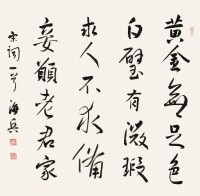 黄金無足色
白璧有微瑕
求人不求備
妾願老君家
宋詞一首 海兵